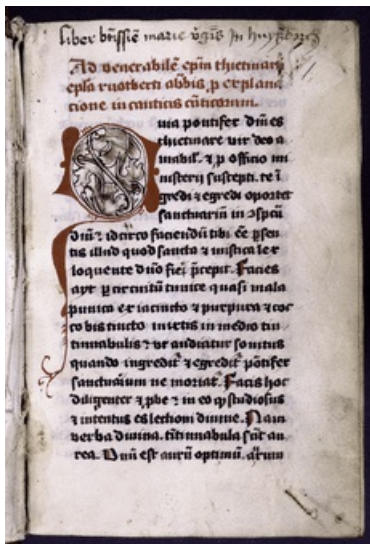 liber btissie marie vgis in huysborch
Ad venerabilē epm thietmarū
epla ruotberti abbis p explana
tione in canticis canticorum.
Quia pontifex dni es
thietmare vir deo a
mabil' ⁊ p officio mi
nisterii suscepti te ī
gredi ⁊ egredi oportet
sanctuariū in ɔspcū
dni ⁊ idcirco faciendū tibi eē psen
tis illud quod sancta ⁊ mistica lex
loquente dno fieri pcepit. Facies
ayt p circuitū tunice quasi mala
punica ex iacincto ⁊ purpura ⁊ coc
co bis tincto mixtis in medio tin
tinnabulis ⁊ ut audiatur sonitus
quando ingredit' ⁊ egredit' pōtifex
sanctuarium ne moriat'. Facis hoc
diligenter ⁊ pbe ⁊ in eo q studiosus
⁊ intentus es lectioni divine. Nam
verba divina tītinnabula sunt au
rea. Dnm est aurū optimū.